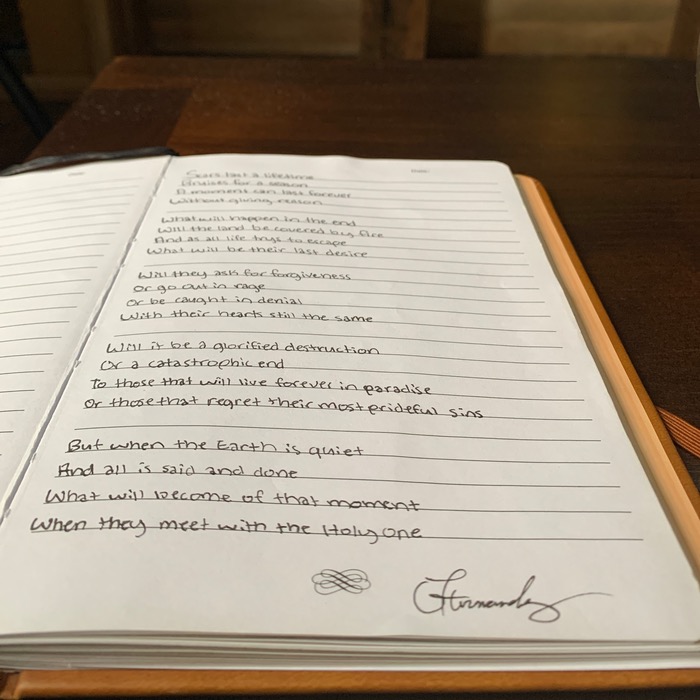 Scars last a lifetime
Bruises for a season
A moment can last forever
Without giving reason
What will happen in the end
Will the land be covered by fire
And as all life trys to escape
What will be their last desire
Will they ask for forgiveness
Or go out in rage
Or be caught in denial
With their hearts still the same
Will it be a glorified destruction
Or a catastrophic end
To those that will live forever in paradise
Or those that regret their most prideful sins
But when the Earth is quiet
And all is said and done
What will become of that moment
When they meet with the Holy one